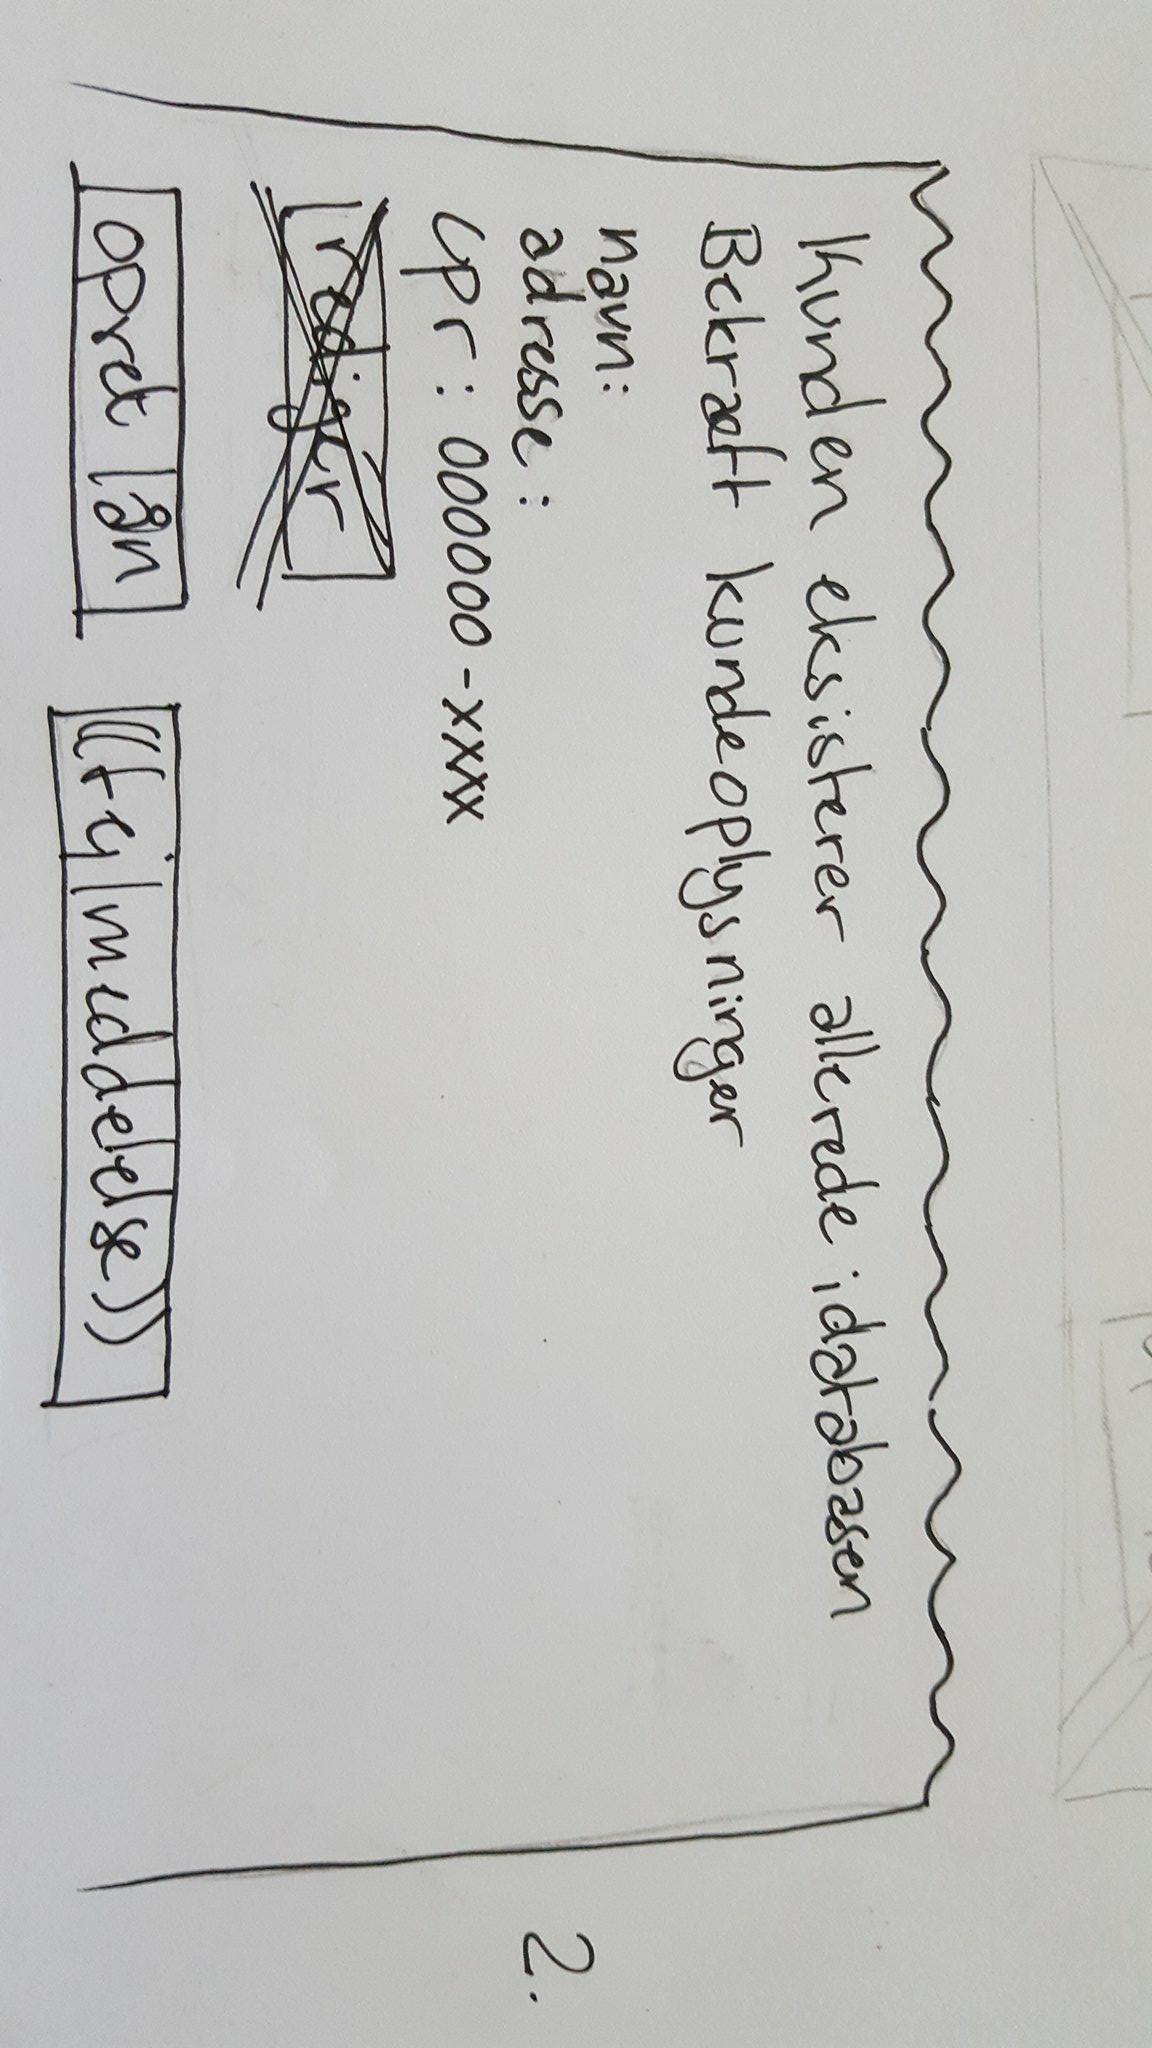 Kunden eksisterer allerede i databasen
Bekræft kundeoplysninger
navn:
adresse:
cpr: 000000-xxxx
rediger
opret lån
(((fejlmeddelse)))
2.